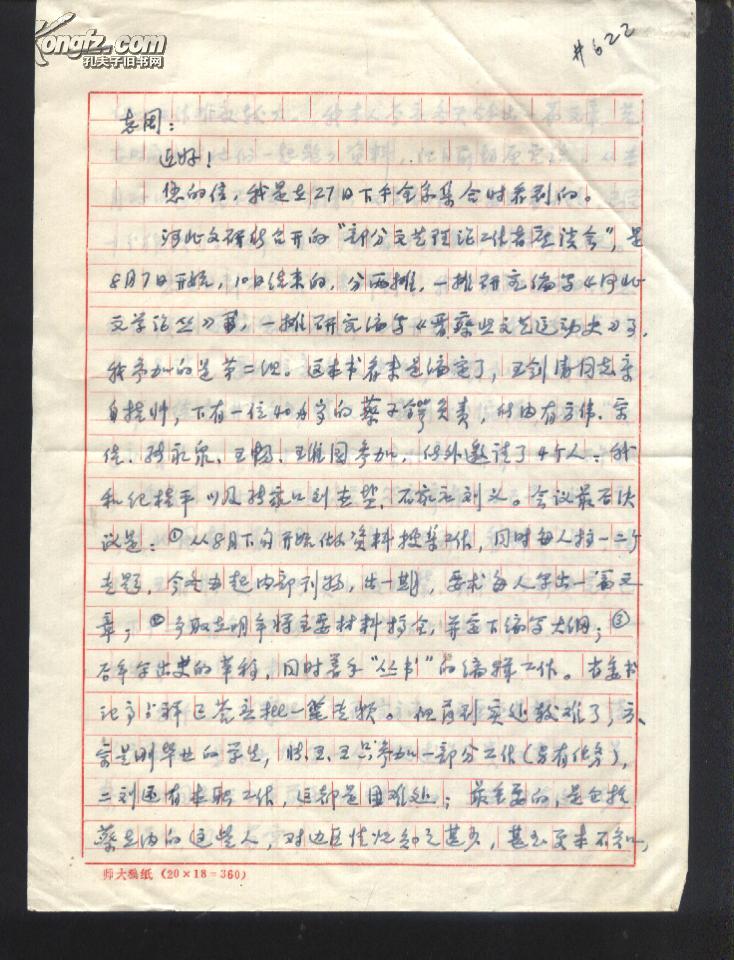 Kongfz.com
孔夫子旧书网
#622
袁周：
近好！
您的信，我是在27日下午全家集合时看到的。
河北文研所召开的“部分文艺理论工作者座谈会”，是
8月7日开始，10日结束的，分两摊，一摊研究编写《河北
文学论丛》事，一摊研究编写《晋察冀文艺运动史》事。
我参加的是第二组。这本书看来是编定了，王剑清同志亲
自挂帅，下有一位40多岁的蔡子谔负责，所内有方伟、宋
王畅、王维国参加，所外邀请了4个人：我
和纪桂平以及张家口刘 石家庄刘 。会议最后决
议是：①从8月下旬开始做资料搜集工作，同时每人拄一二个
专题，今冬办起内部刊物，出一期，要求每人写出一篇文
章；②争取在明年将主要材料搞全，并定下编写大纲；③
后年写出史的草稿，同时着手“丛书”的编辑工作。省委书
记 已答应批一笔专款。但落到实处较难了，方、
宋是刚毕业的学生，张、王、王只参加一部分工作（另有任务），
二刘还有本职工作，这都是困难处；最重要的，是包括
蔡在内的这些人，对边区情况知之甚少，甚至根本不知，
师大稿纸（20×18=360）